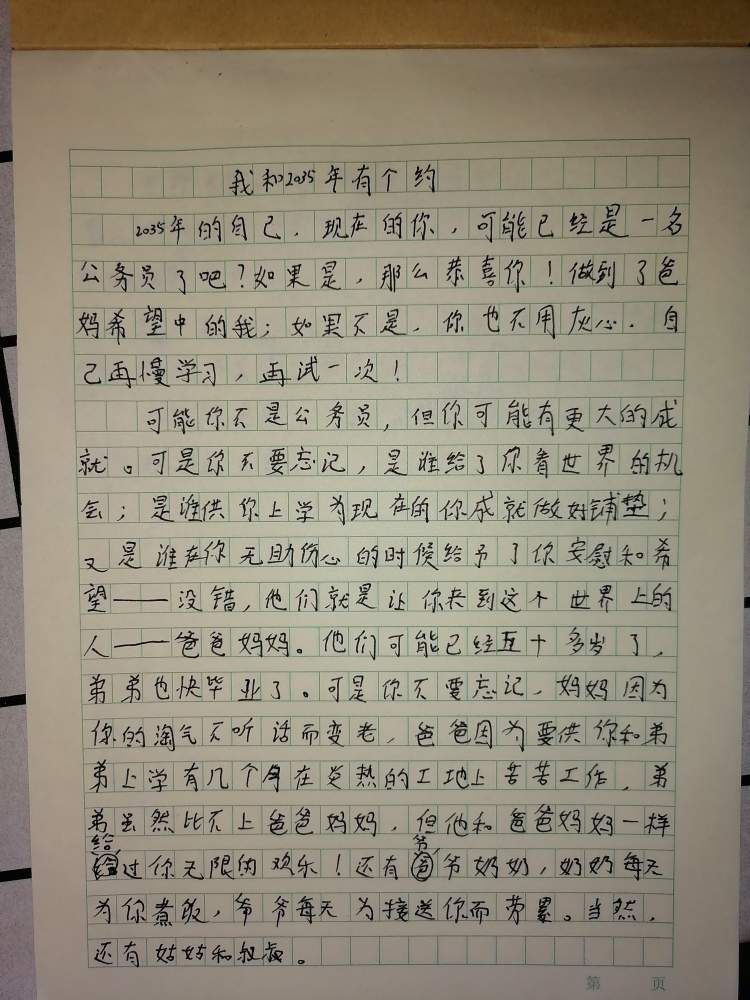 我和2035年有个约
2035年的自己，现在的你，可能已经是一名
公务员了吧？如果是，那么恭喜你！做到了爸
妈希望中的我；如果不是，你也不用灰心．自
己再慢学习，再试一次！
可能你不是公务员，但你可能有更大的成
就。可是你不要忘记，是谁给了你看世界的机
会；是谁供你上学为现在的你成就做好铺垫；
又是谁在你无助伤心的时候给予了你安慰和希
望——没错，他们就是让你来到这个世界上的
人——爸爸妈妈。他们可能已经五十多岁了，
弟弟也快毕业了。可是你不要忘记，妈妈因为
你的淘气不听话而变老，爸爸因为要供你和弟
弟上学有几个月在炎热的工地上苦苦工作，弟
弟虽然比不上爸爸妈妈，但他和爸爸妈妈一样
给过你无限的欢乐！还有爷爷奶奶，奶奶每天
为你煮饭，爷爷每天为接送你而劳累。当然，
还有姑姑和叔叔。
第 页